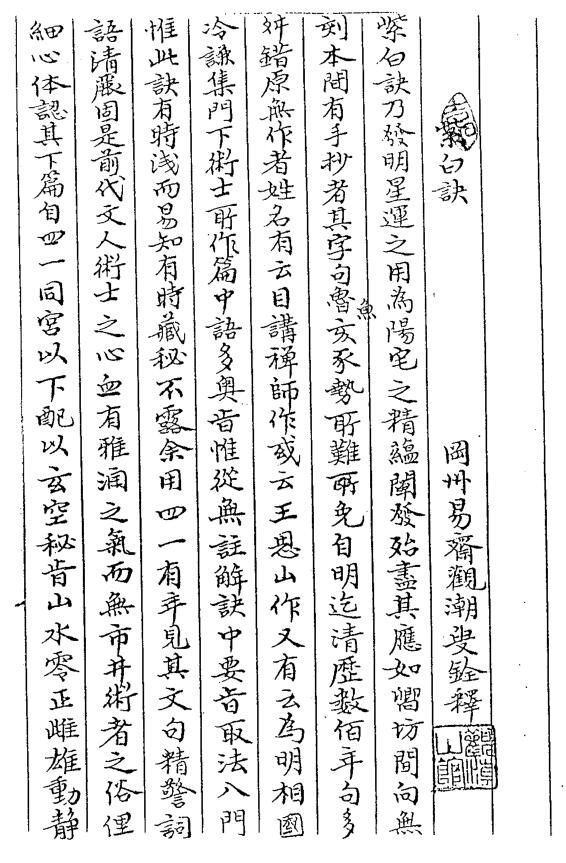 紫白訣
岡州易齋觀潮叟銓釋
紫白訣乃發明星運之用為陽宅之精蘊闡發殆盡其應如響坊間向無
刻本間有手抄者其字句魯魚亥豕勢所難所免自明迄清歷數佰年句多
舛錯原無作者姓名有云目講禅師作或云王思山作又有云為明相國
冷謙集門下術士所作篇中語多奥旨惟從無註解訣中要旨取法八門
惟此訣有時浅而易知有時藏秘不露余用四一有年見其文句精警詞
語清麗固是前代文人術士之心血有雅润之氣而無市井術者之俗俚
細心体認其下篇自四一同宮以下配以玄空秘旨山水零正雌雄動静